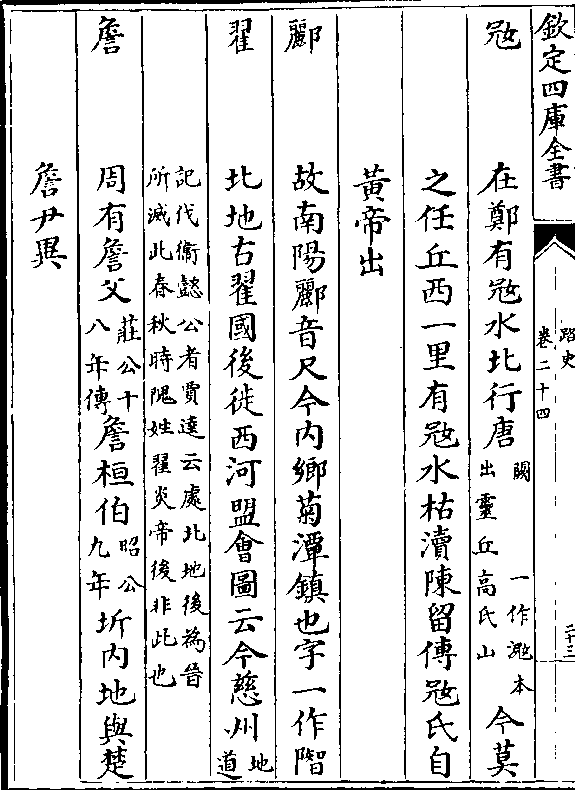 欽定四庫全書
路史
卷二十四
二十三
㓂 在鄭有㓂水北行唐闕 一作滱本出靈丘高氏山今莫
之任丘西一里有㓂水枯瀆陳留傳㓂氏自
黃帝出
酈 故南陽酈音尺今内鄉菊潭鎮也字一作
翟 北地古翟國後徙西河盟會圖云今慈州地道
記伐衞懿公者賈逵云處北地後為晉所滅此春秋時隗姓翟炎帝後非此也
詹 周有詹父莊公十八年傳詹桓伯昭公九年圻内地與楚
詹尹異